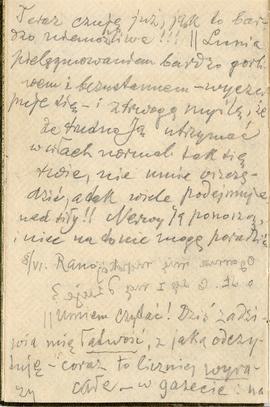 Teraz czuję już, jak to bar-
dzo niemożliwe!!! || Lunia
pielęgnowaniem bardzo gorli-
wem i bezustannem – wyczer-
puje się – i z trwogą myślę, że
że trudno Ją utrzymać
w siłach normal tak się
rwie, nie umie
dzić, a tak wiele podejmuje
nad siły!! Nerwy ją ponoszą,
i nic na to nie mogę poradzić
8/VI. Rano
|| Umiem czytać! Dziś zadzi-
wia mię łatwość, z jaką odczy-
tuję – coraz to liczniej wyra-
zy całe – w gazecie: na